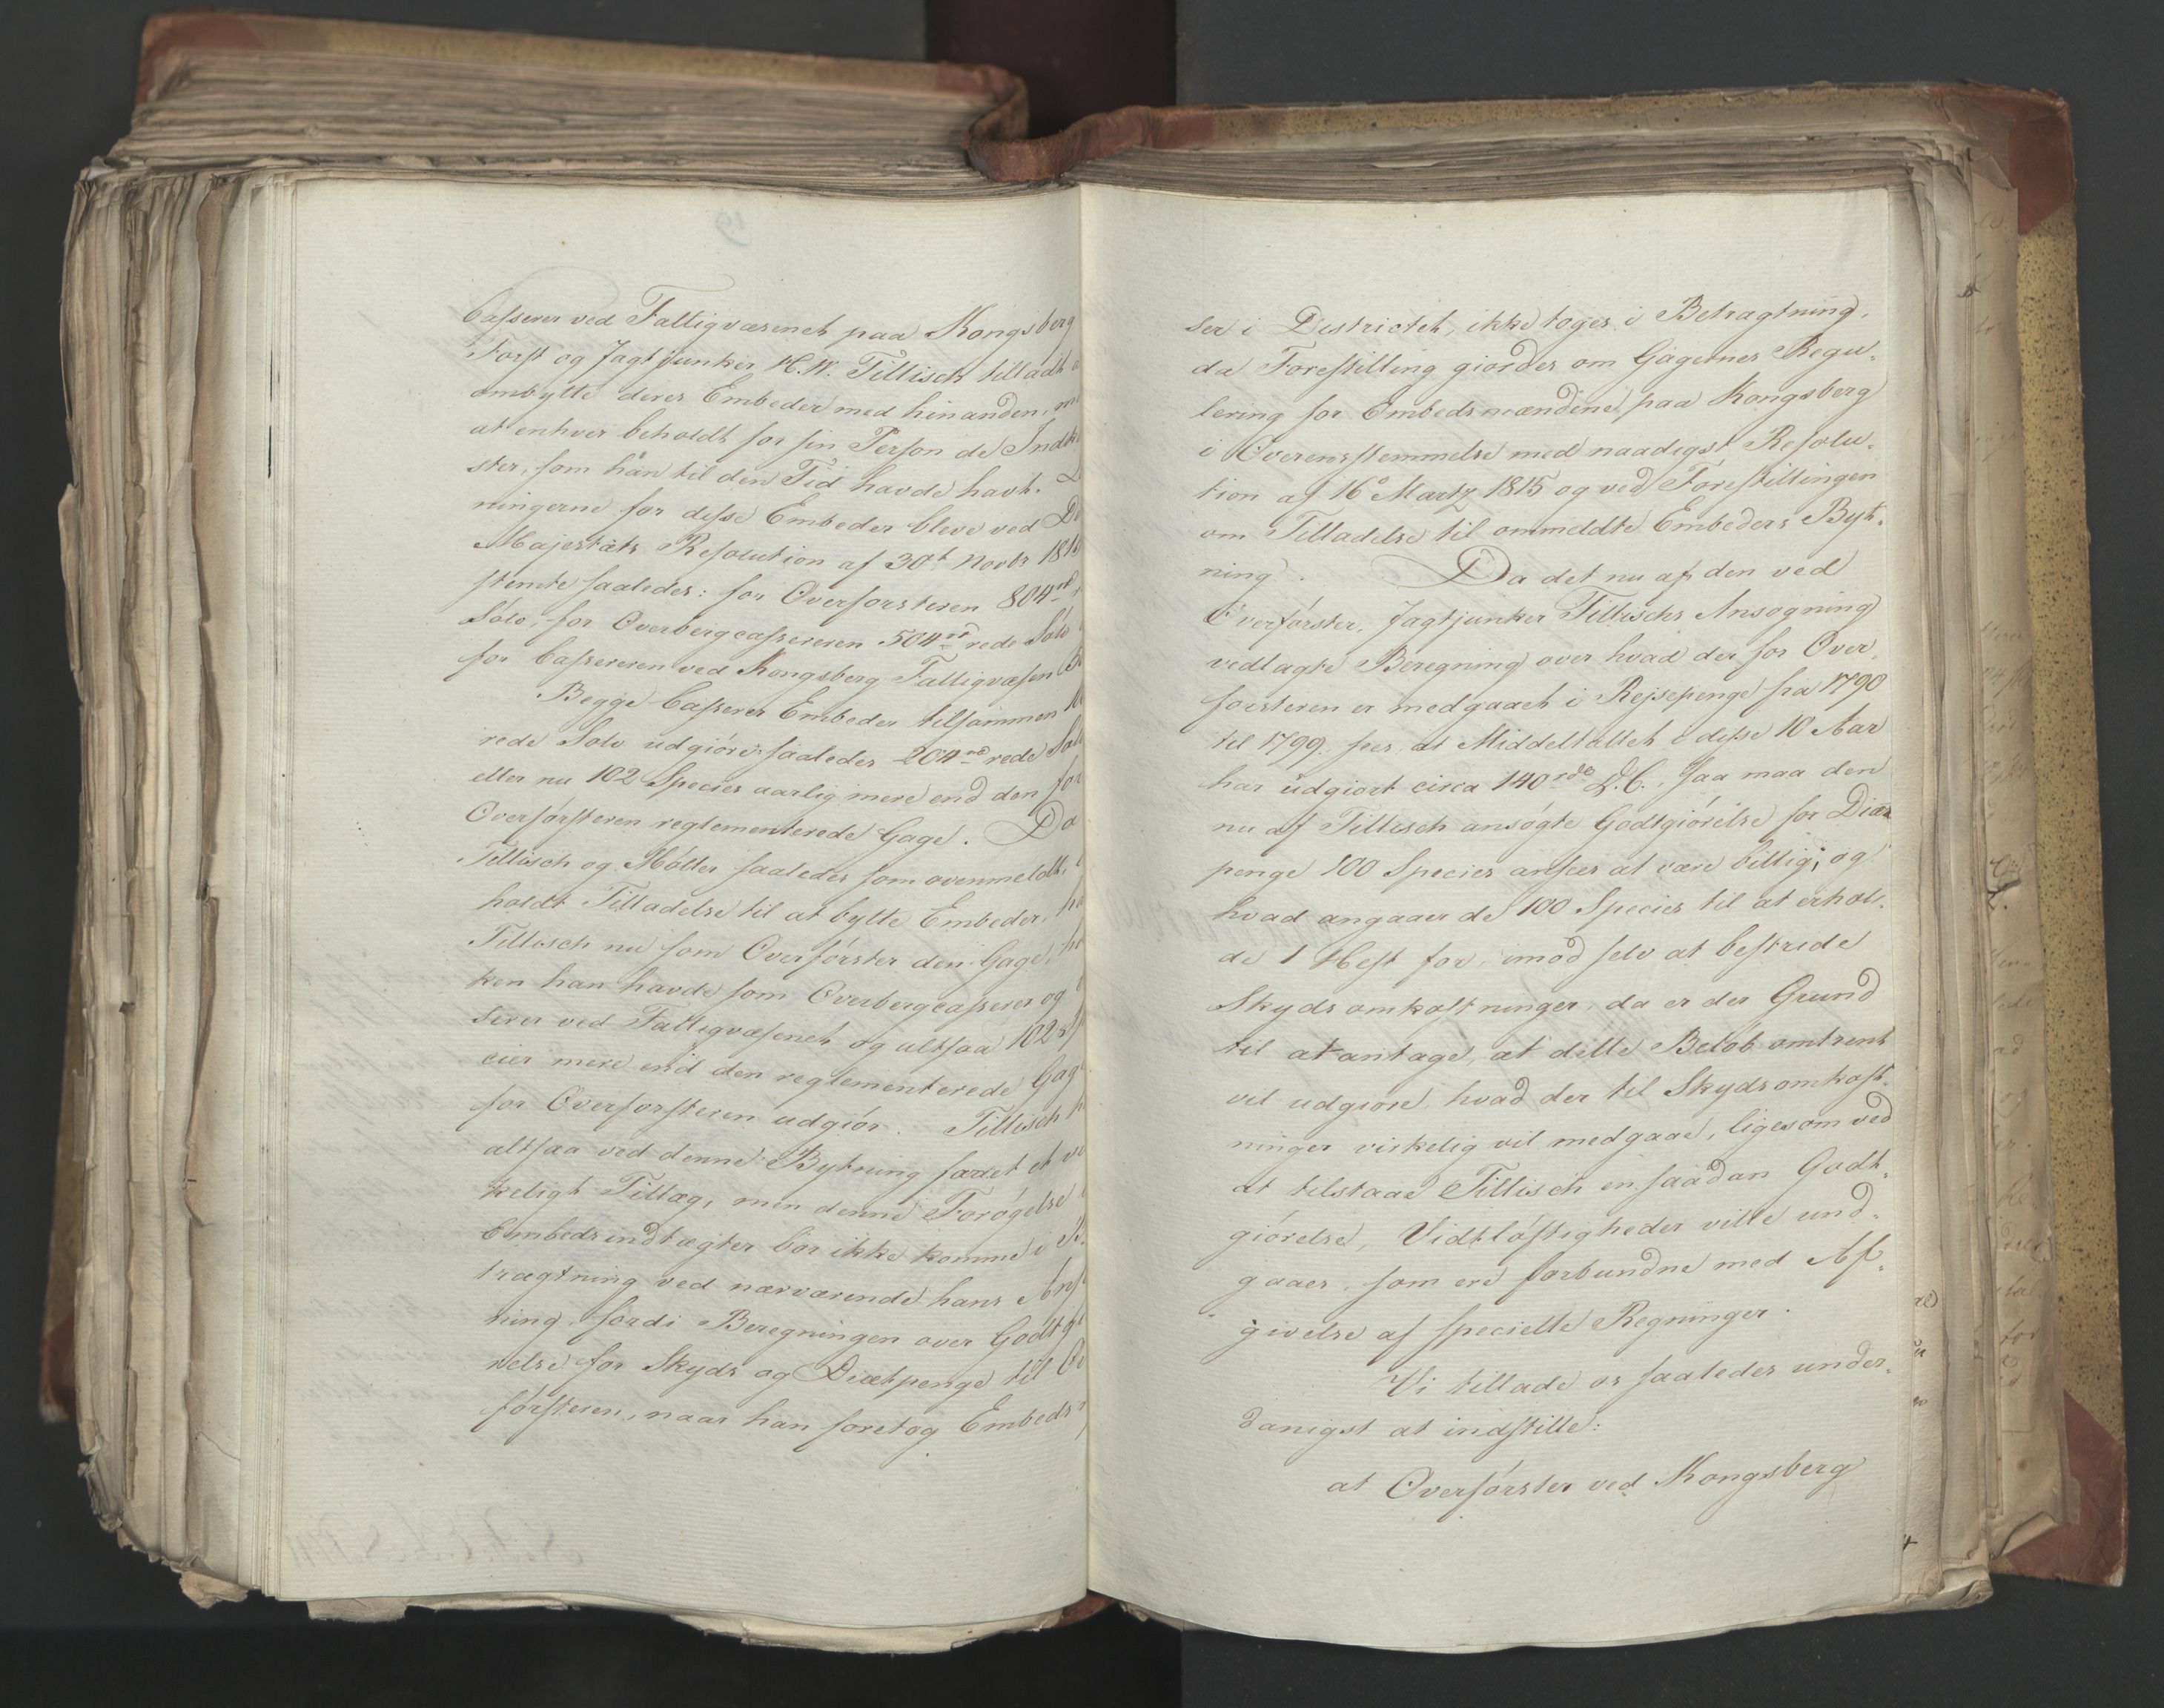 Casserer ved Fattigvæsenet paa Kongsberg
Forst og Jagtjunker H.W. Tillisch tilladt
ombytte deres Embeder med hinanden,
at enhver beholdt for sin Person de
ster, som han til den Tid havde havt.
ningerne for disse Embeder bleve ved
Majestæts Resolution af 30t Novbr
stemte saaledes: for Overforsteren 804 rd
Sølv, for Overbergcassereren 504 rd rede Sølv
for Cassereren ved Kongsberg Fattigvæsen
Begge Casserer Embeder tilsammen
rede Sølv udgiøre saaledes 204 rd rede
eller nu 102 Species aarlig mere end den for
Overførsteren reglementerede Gage. Da
Tillisch og Møller saaledes som ovenmeldt,
holdt Tilladelse til at bytte Embeder,
Tillisch nu som Overførster den Gage,
ken han havde som Overbergcasserer og
serer ved Fattigvæsenet og altsaa 102
cier mere end den reglementerede
for Overforsteren udgiør. Tillisch
altsaa ved denne Bytning faaet et
keligt Tillæg, men denne Forøgelse
Embedsindtægter bør ikke komme i
tragtning ved nærværende hans
ning, fordi Beregningen over
relse for Skyds og Diætpenge til
førsteren, naar han foretog Embeds
ser i Districtet, ikke toges i Betragtning,
da Forestilling giordes om Gagernes Regu-
lering for Embedsmændene paa Kongsberg
i Overensstemmelse med naadigst Resolu-
tion af 16de Martz 1815 og ved Forestillingen
om Tilladelse til ommeldte Embeders Byt-
ning. Da det nu af den ved
Overførster, Jagtjunker Tillischs Ansøgning
vedlagte Beregning over hvad der for Over-
forsteren er medgaaet i Rejsepenge fra 1790
til 1799 sees, at Middeltallet i disse 10 Aar
har udgiort circa 140 rd D.C., saa maa den
nu af Tillisch ansøgte Godtgiørelse for Diæt
penge 100 Species ansees at være billig; og
hvad angaaer de 100 Species til at erhol-
de 1 Hest for, imod selv at bestride
Skydsomkostninger, da er der Grund
til at antage, at dette Beløb omtrent
vil udgiøre hvad der til Skydsomkost-
ninger virkelig vil medgaae, ligesom ved
at tilstaae Tillisch en saadan Godt-
giørelse, Vidtløftigheder ville und-
gaaes, som ere forbundne med Af-
givelse af specielle Regninger.
Vi tillade os saaledes under-
danigst at indstille:
at Overførster ved Kongsberg